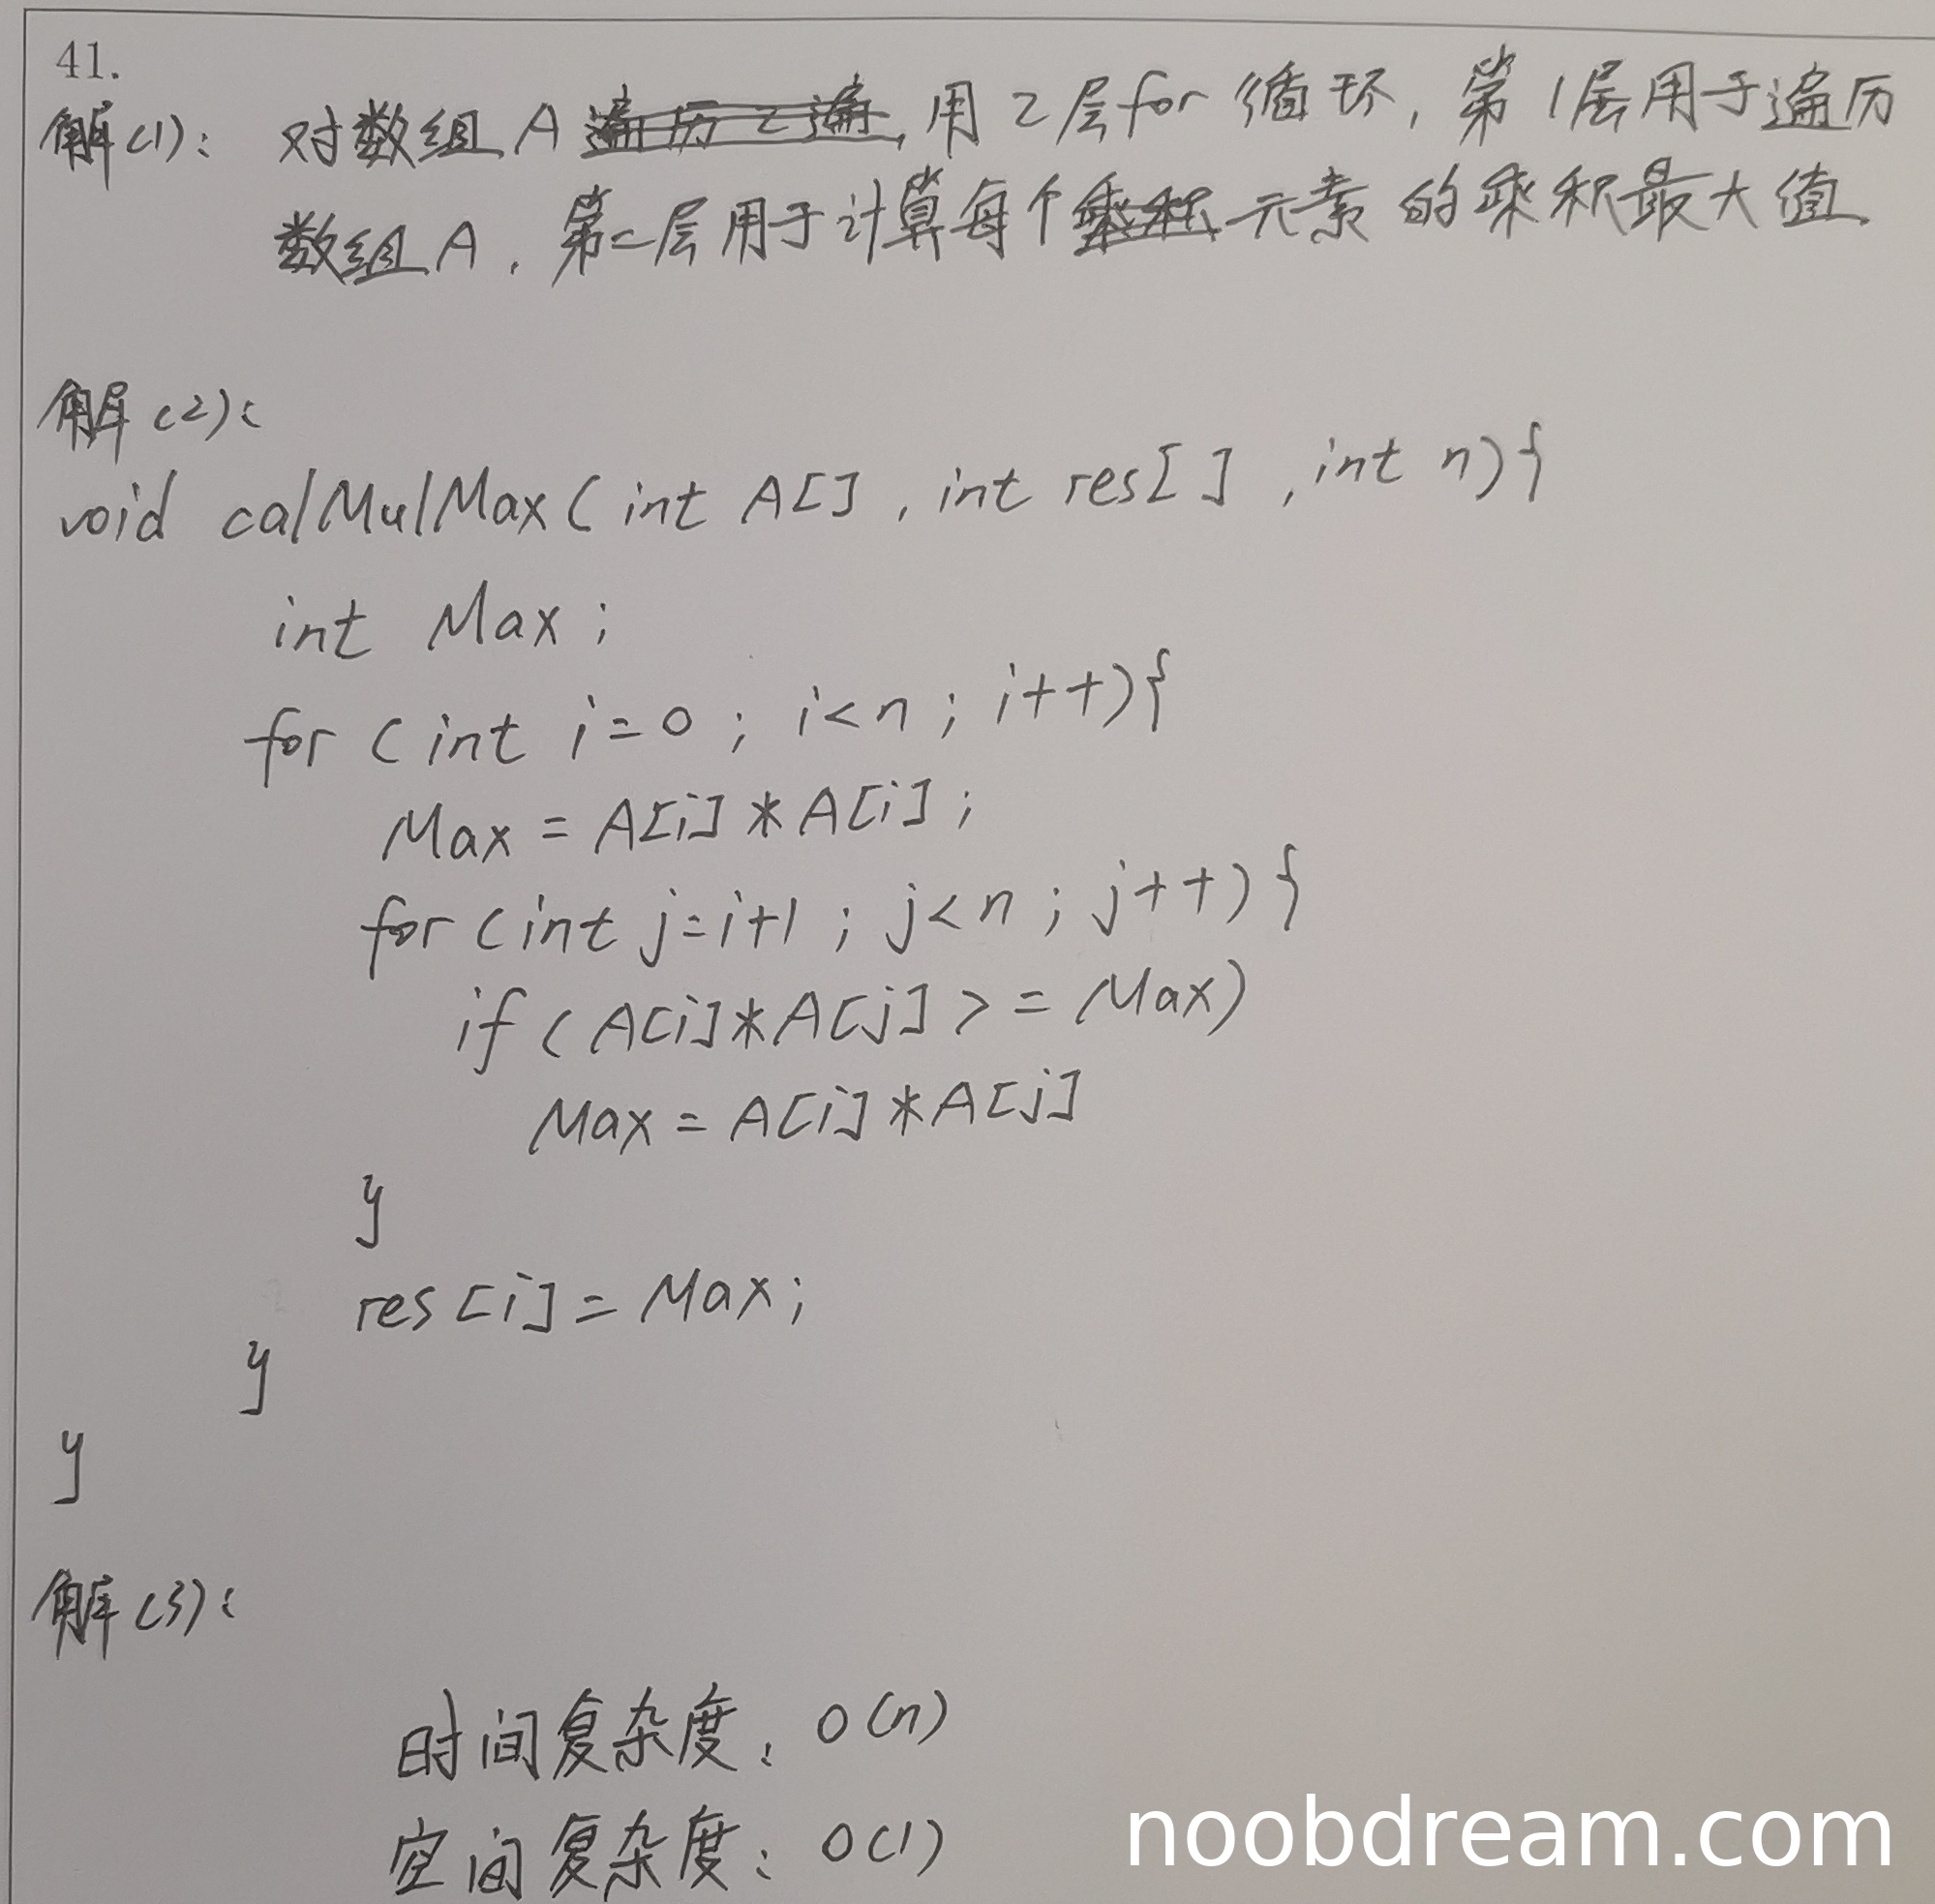 41.
解(1): 对数组A 用2层for循环, 第1层用于遍历
数组A, 第二层用于计算每个元素的乘积最大值
解(2):
void calMulMax(int A[], int res[], int n){
int Max;
for (int i=0; i<n; i++){
Max = A[i]*A[i];
for(int j=i+1; j<n; j++){
if (A[i]*A[j] >= Max)
Max = A[i]*A[j]
}
res[i] = Max;
}
}
解(3):
时间复杂度: O(n)
空间复杂度: O(1)
noobdream.com